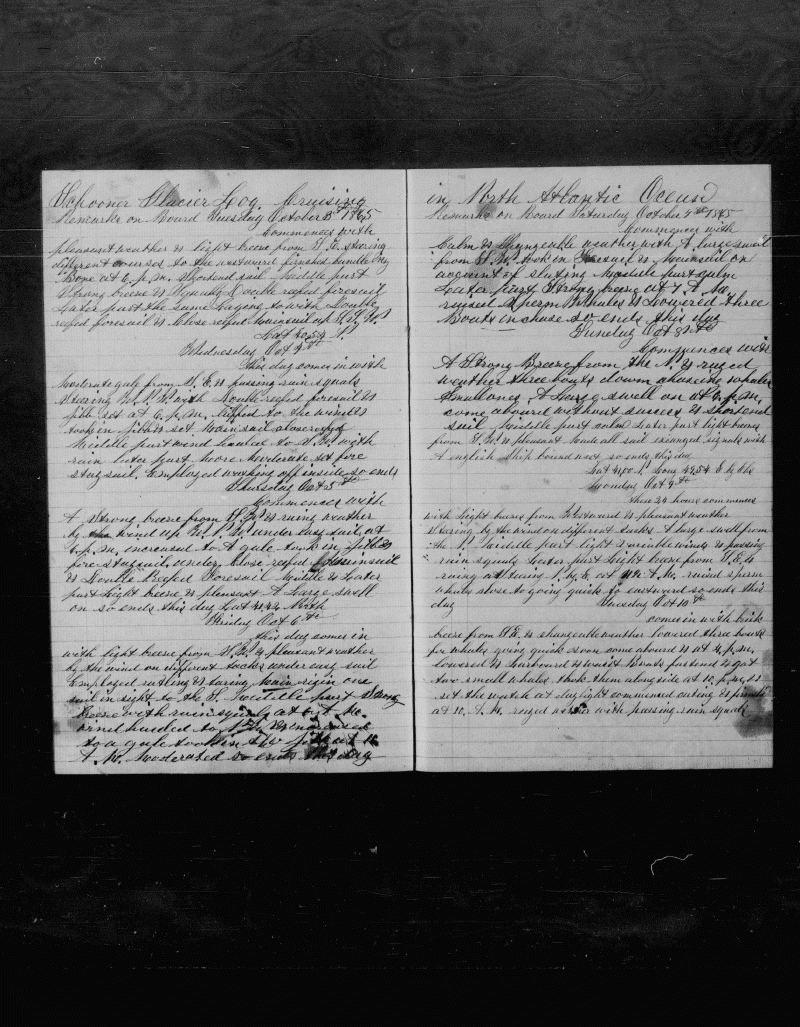 Schooner Glacier Log Cruising
Remarks on Board Tuesday October 3th 1865
Commences with
pleasant weather & light breeze from S. E. stearing
different courses to the eastward finished bundling
Bone at 6. p. m. Shortend sail Middle part
Strong breeze & Squauly Double reefed foresail
Later part the same Laying to with Double
reefed foresail & Close reefed Mainsail up
Lat 40.54 N.
Wednesday Oct 4th
This day comes in with
Moderate gale from S. E. & passing rain squals
Stearing with Double reefed foresail &
jibb set at 6. p. m. luffed to the wind &
took in jibb & set Mainsail close reefed
Middle part wind hauled to S. W. with
rain later part more Moderate set fore
staysail. Employed washing off inside so ends
Thursday Oct 5th
Commences with
A Strong breeze from & raning weather
by the wind under easy sail at
6. p. m. increased to A gale took in jibb &
fore staysail under Close reefed Mainsail
& Double Reefed Foresail Middle & Later
part Light breeze & pleasant A Large swell
on so ends this day Lat 41,42 North
Friday Oct 6th
This day comes in
with light breeze from & pleasant weather
by the wind on different tacks under easy sail
Employed ratling & taring Main rigin one
sail in sight to the S. Middle part Strong
breeze with rain squals at 6. A. M.
to a gale took in jibb at 10
A. M. Moderated so ends this day
in North Atlantic Ocean
Remarks on Board Saturday October 7th 1865
Commences with
Calm & Changeable weather with A large swell
from took in Foresail & Mainsail on
account of slating Middle part calm
Later part Strong breeze at 7 A. M.
raised Sperm Whales & Lowered three
Boats in chase so ends this day
Sunday Oct 8th
Commences with
A Strong Breeze from the N. & ruged
weather three boats down chaseing whales
Small ones, A Large swell on at 6. p. m.
come aboard without success & shortened
sail Middle part calm Later part light breeze
from & pleasant Made all sail exianged signals with
A english Ship bound west so ends this day
Lat 41,00 Long
Monday Oct 9th
These 24 hours commences
with Light breeze from Westward & pleasant weather
Stearing by the wind on different tacks A large swell from
the N. Middle part light & variable winds & passing
rain squals Later part Light breeze from S. E. &
raning Stearing N. by E. at A. M. raised sperm
whales close to going quick to eastward so ends this
day
Tuesday Oct 10th
comes in with brisk
breeze from & changeable weather lowered three boats
for whales going quick soon come aboard & at 4. p. m.
lowered & Larboard & waist Boats fastend & got
two small whales took them along side at 10. p. m. &
set the watch at day light commenced cuting & finished
at 10. A. M. ruged with passing rain squals